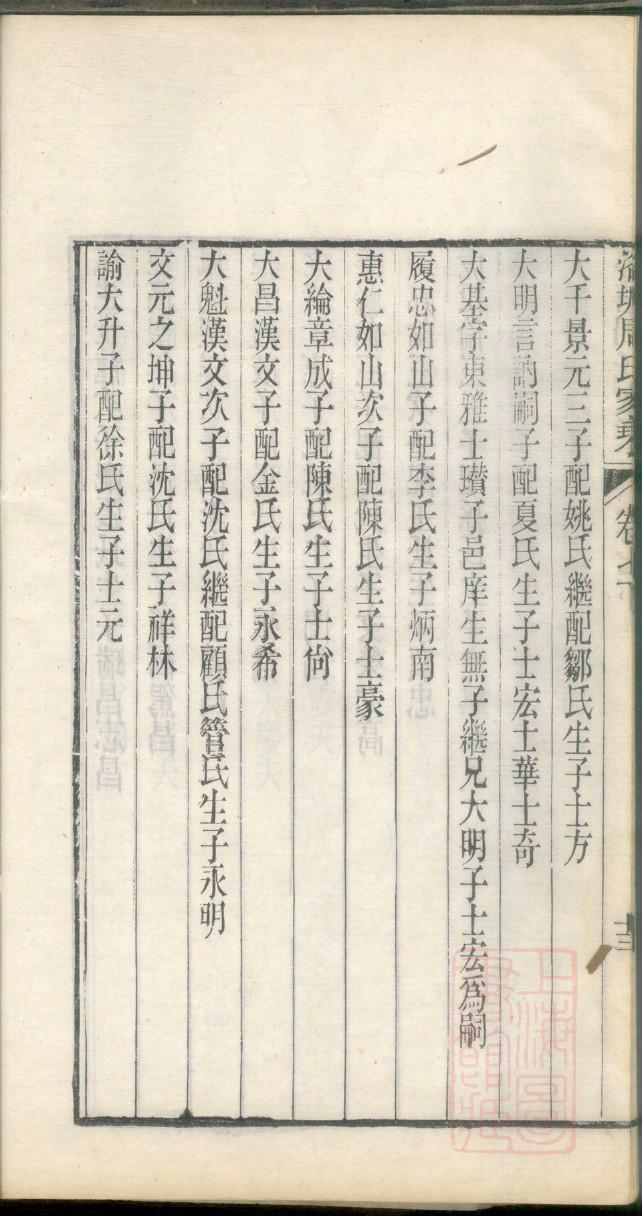 周氏家乘 卷七 十三
大千景元三子配姚氏繼配鄒氏生子士方
大明言訥嗣子配夏氏生子士宏士華士奇
大基字東雅士瓚子邑庠生無子繼兄大明子士宏爲嗣
履忠如山子配李氏生子炳南
惠仁如山次子配陳氏生子士豪
大綸章成子配陳氏生子士尙
大昌漢文子配金氏生子永希
大魁漢文次子配沈氏繼配顧氏管氏生子永明
文元之坤子配沈氏生子祥林
諭大升子配徐氏生子士元
上海圖書館藏